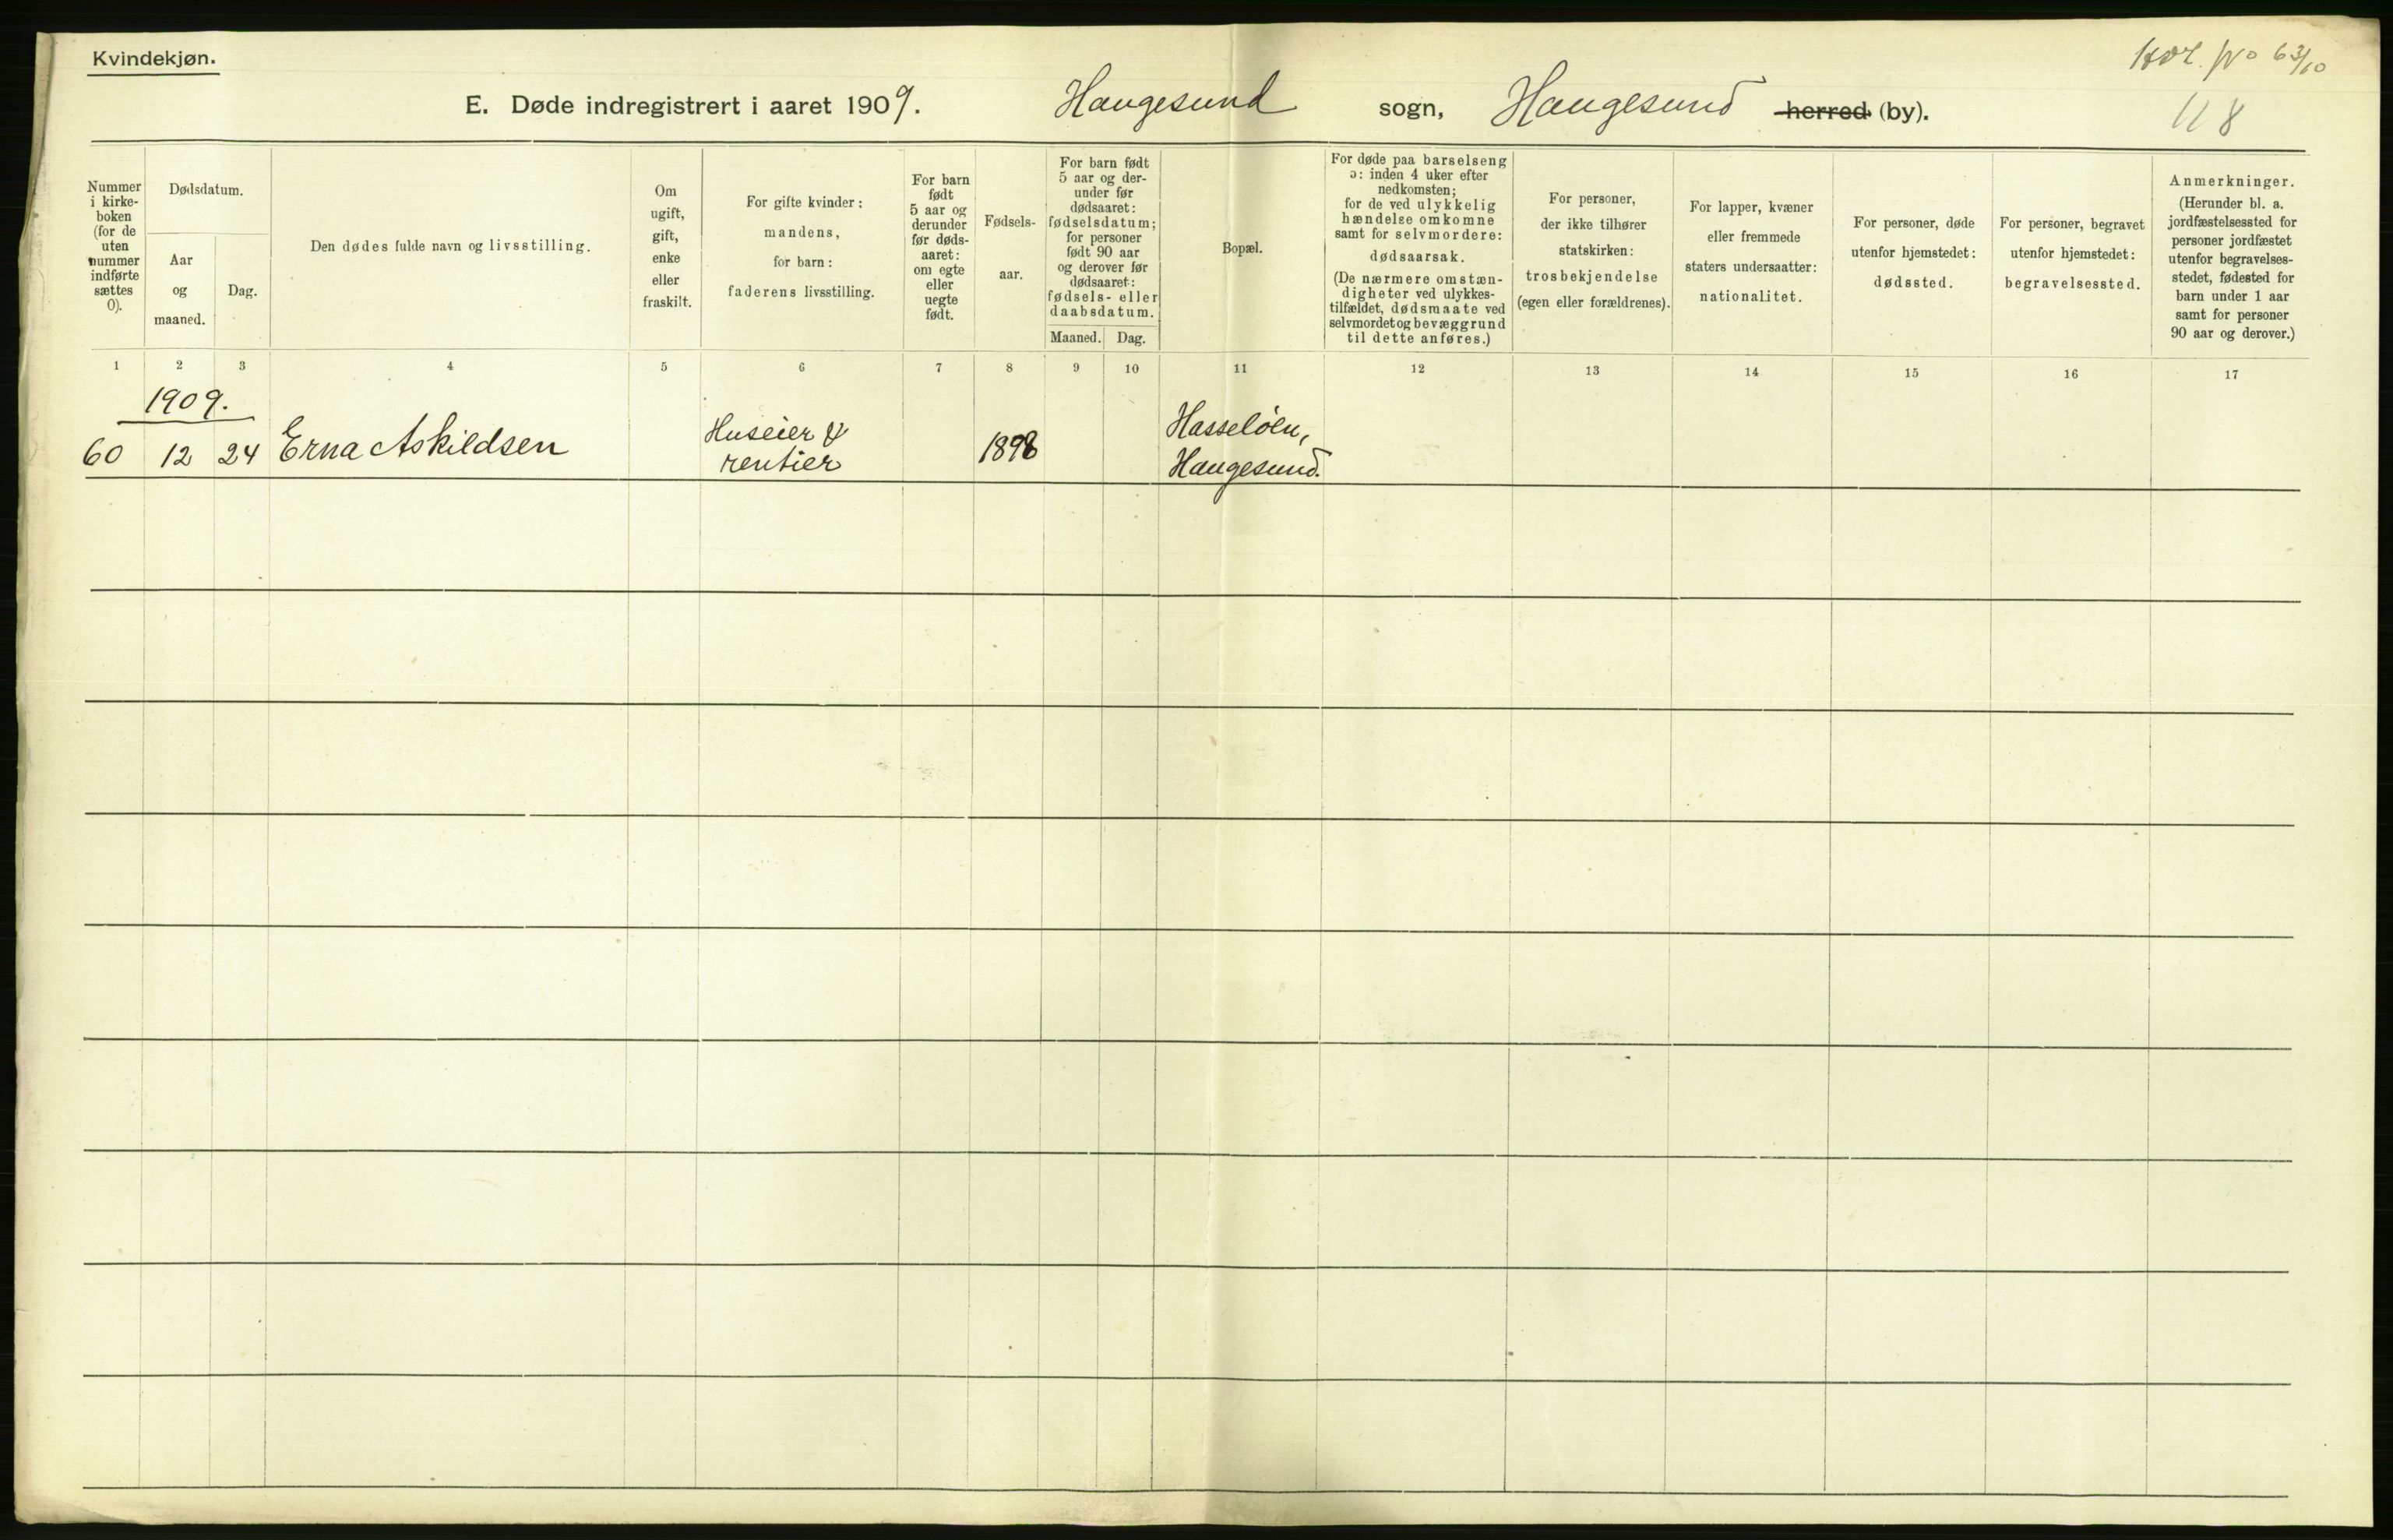 Kvindekjøn.
No 63/10
E. Døde indregistrert i aaret 1909. Haugesund sogn, Haugesund herred (by).
118
Nummer
i kirke-
boken
(for de
uten
nummer
indførte
sættes
0).
Dødsdatum.
Aar
og
maaned.
Dag.
Den dødes fulde navn og livsstilling.
Om
ugift,
gift,
enke
eller
fraskilt.
For gifte kvinder:
mandens,
for barn:
faderens livsstilling.
For barn
født
5 aar og
derunder
før døds-
aaret:
om egte
eller
uegte
født.
Fødsels-
aar.
For barn født
5 aar og der-
under før
dødsaaret:
fødselsdatum;
for personer
født 90 aar
og derover før
dødsaaret:
fødsels- eller
daabsdatum.
Maaned.
Dag.
Bopæl.
For døde paa barselseng
ɔ: inden 4 uker efter
nedkomsten;
for de ved ulykkelig
hændelse omkomne
samt for selvmordere:
dødsaarsak.
(De nærmere omstæn-
digheter ved ulykkes-
tilfældet, dødsmaate ved
selvmordet og bevæggrund
til dette anføres.)
For personer,
der ikke tilhører
statskirken:
trosbekjendelse
(egen eller forældrenes).
For lapper, kvæner
eller fremmede
staters undersaatter:
nationalitet.
For personer, døde
utenfor hjemstedet:
dødssted.
For personer, begravet
utenfor hjemstedet:
begravelsessted.
Anmerkninger.
(Herunder bl. a.
jordfæstelsessted for
personer jordfæstet
utenfor begravelses-
stedet, fødested for
barn under 1 aar
samt for personer
90 aar og derover.)
1 2 3 4 5 6 7 8 9 10 11 12 13 14 15 16 17
1909.
60 12 24 Erna Askildsen
Huseier &
rentier
1898
Hasseløen,
Haugesund.